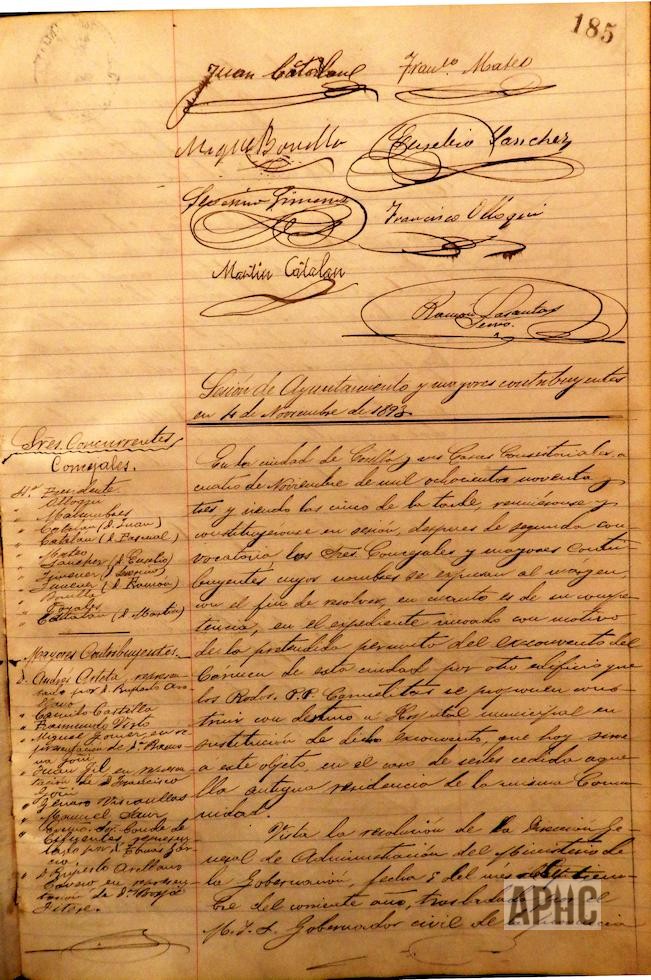 185
Juan Catalan
Fran.co Mateo
Miguel Bonilla
Eusebio Sanchez
Gimenez
Francisco Olloqui
Martin Catalan
Ramon Lasantas
Srio.
Sesión de Ayuntamiento y mayores contribuyentes
en 4 de Noviembre de 1893
Sres. Concurrentes
Concejales.
Sr. Presidente
" Olloqui
" Catalan (D. Juan)
" Catalan (D. Pascual)
" Mateo
" Sanchez (D. Eusebio)
" Gimenez
" Gimenez (D. Ramon)
" Bonilla
" Catalan (D. Martin)
Mayores Contribuyentes.
D. Andrés Arteta, represen-
tado por D. Ruperto
" Camilo Castella
" Raimundo Virto
" Miguel Gomez, en re-
presentacion de D.ª Ramo-
na Goñi
" Juan Gil en represen-
tacion de D. Francisco
Goñi
" Genaro
" Manuel Sanz
" Sr. Conde de
D. Ruperto Arellano
en represen-
tacion de
En la ciudad de Corella y sus Casas Consistoriales, a
cuatro de Noviembre de mil ochocientos noventa y
tres y siendo las cinco de la tarde, reuniéronse y
constituyeronse en sesión, despues de segunda con-
vocatoria los Sres. Concejales y mayores contri-
buyentes cuyos nombres se expresan al margen,
con el fin de resolver, en cuanto es de su compe-
tencia, en el expediente incoado con motivo
de la pretendida permuta del exconvento del
Cármen de esta ciudad por otro edificio que
los Rvdos. P.P. Carmelitas se proponen cons-
truir con destino á Hospital municipal en
sustitución de dicho exconvento, que hoy sirve
a este objeto, en el caso de serles cedida aque-
lla antigua residencia de la misma Comu-
nidad.
Vista la resolución de la Direccion Ge-
neral de Administración del Ministerio de
la Gobernación, fecha 5 del mes
del corriente año, trasladada por el
M. I. S. Gobernador civil de
APHC